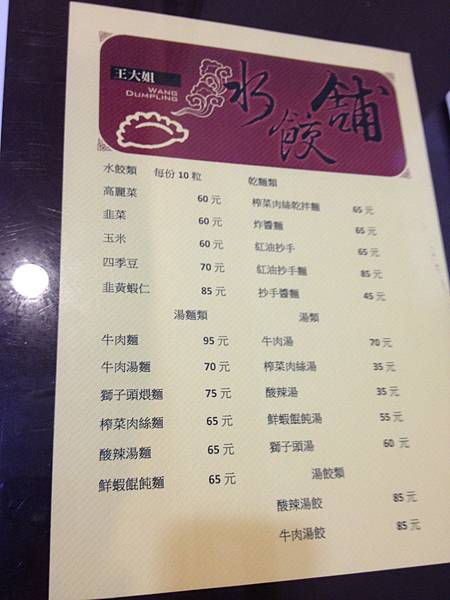 王大姐
WANG
DUMPLING
水餃舖
水餃類 每份10粒
高麗菜 60元
韭菜 60元
玉米 60元
四季豆 70元
韭黃蝦仁 85元
乾麵類
榨菜肉絲乾拌麵 65元
炸醬麵 65元
紅油抄手 65元
紅油抄手麵 85元
抄手醬麵 45元
湯麵類
牛肉麵 95元
牛肉湯麵 70元
獅子頭煨麵 75元
榨菜肉絲麵 65元
酸辣湯麵 65元
鮮蝦餛飩麵 65元
湯類
牛肉湯 70元
榨菜肉絲湯 35元
酸辣湯 35元
鮮蝦餛飩湯 55元
獅子頭湯 60元
湯餃類
酸辣湯餃 85元
牛肉湯餃 85元